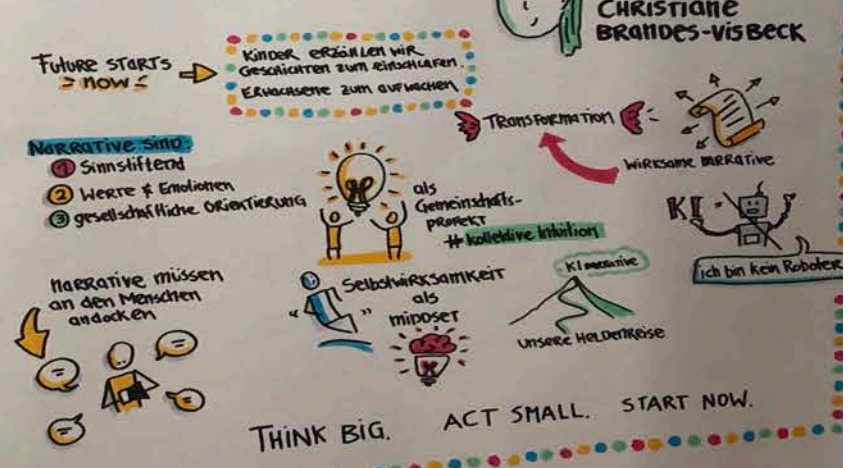 CHRISTIANE
BRANDES-VISBECK
FUTURE STARTS
> NOW <
KINDER ERZÄHLEN WIR
GESCHICHTEN ZUM EINSCHLAFEN.
ERWACHSENE ZUM AUFWACHEN
TRANSFORMATION
WIRKSAME NARRATIVE
NARRATIVE SIND:
1 Sinnstiftend
2 WERTE & Emotionen
3 gesellschaftliche ORIENTIERUNG
als
Gemeinschafts-
PROJEKT
# kollektive Intuition
KI
ich bin kein Roboter
NARRATIVE müssen
an den Menschen
andocken
Selbstwirksamkeit
als
MINDSET
KI NARRATIVE
UNSERE HELDENREISE
THINK BIG. ACT SMALL. START NOW.